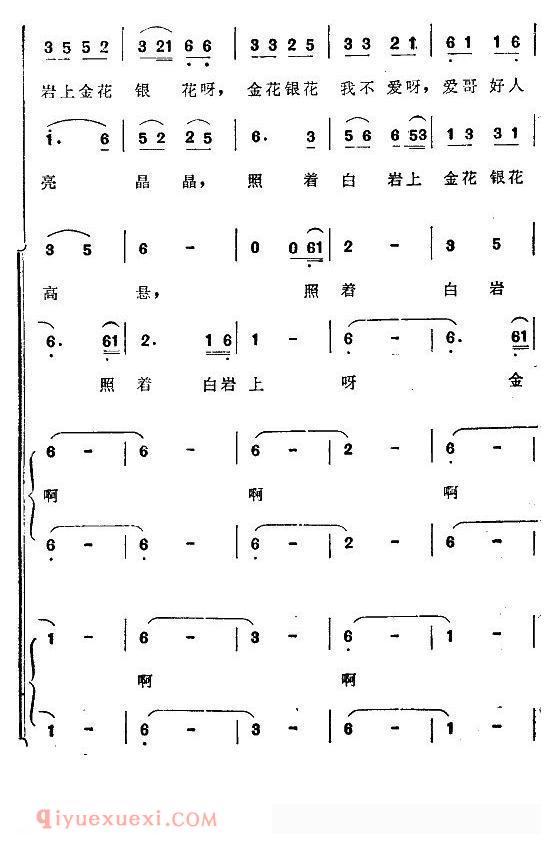 3 5 5 2 | 3 21 6 6 | 3 3 2 5 | 3 3 2 1 | 6 1 1 6
岩上金花 银 花呀, 金花银花 我不 爱呀, 爱哥 好人
1. 6 | 5 2 2 5 | 6. 3 | 5 6 6 53 | 1 3 3 1
亮 晶 晶, 照 着 白 岩上 金花 银花
3 5 | 6 - | 0 0 61 | 2 - | 3 5
高 悬, 照 着 白 岩
6. 61 | 2. 1 6 | 1 - | 6 - | 6. 61
照 着 白岩 上 呀 金
6 - | 6 - | 6 - | 2 - | 6 -
啊 啊 啊
6 - | 6 - | 6 - | 2 - | 6 -
1 - | 6 - | 3 - | 6 - | 1 -
啊 啊
1 - | 6 - | 3 - | 6 - | 1 -
qiyuexuexi.com